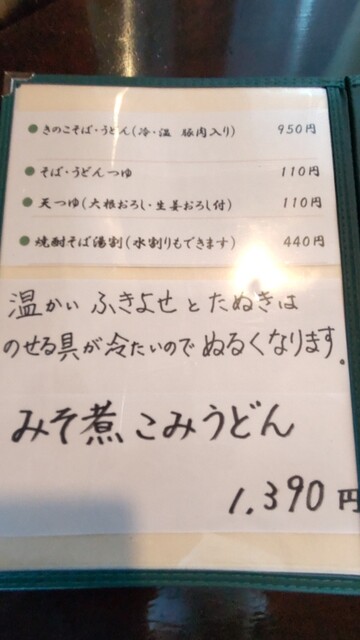 ●きのこそば・うどん(冷・温 豚肉入り) 950円
●そば・うどんつゆ 110円
●天つゆ(大根おろし・生姜おろし付) 110円
●焼酎そば湯割(水割りもできます) 440円
温かい ふきよせ と たぬきは
のせる具が冷たいので ぬるくなります。
みそ煮こみうどん
1,390円